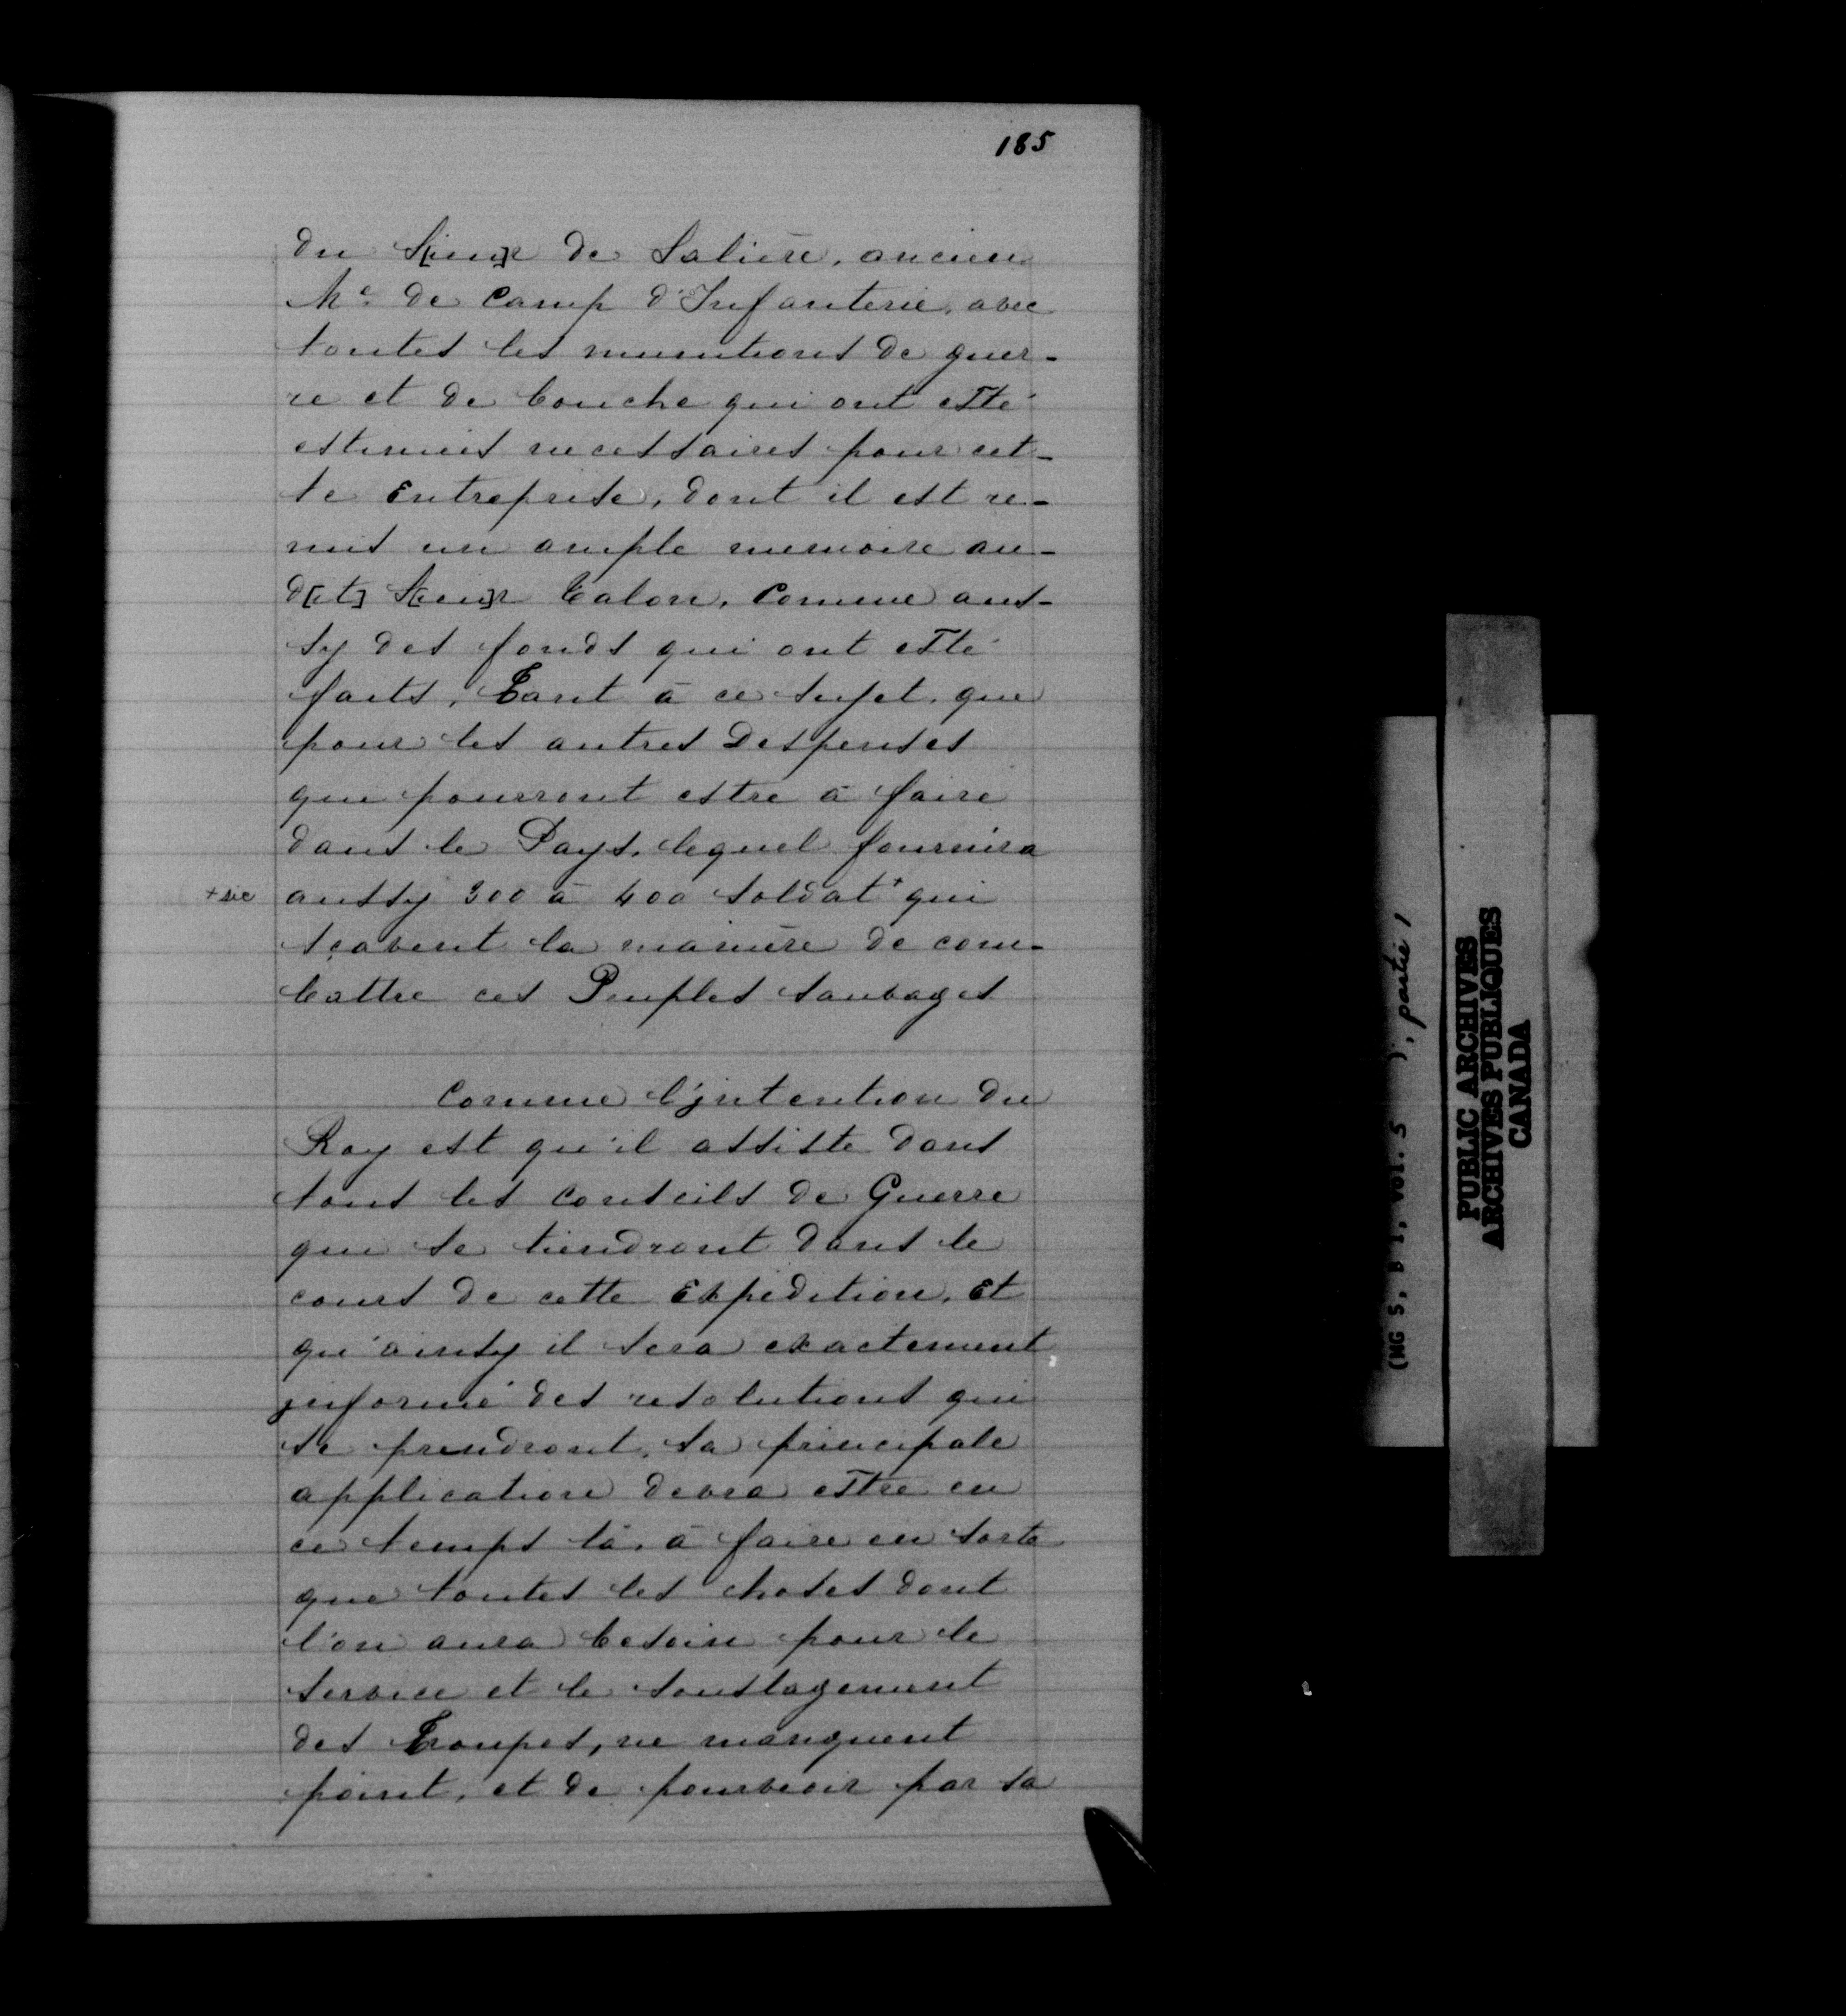 185
du S[ieu]r de Salière, ancien
Me. de Camp d'Infanterie, avec
toutes les munitions de guer-
re et de bouche qui ont esté
estimées necessaires pour cet-
te Entreprise, dont il est re-
mis un ample memoire au-
d[it] S[ieu]r Talon, Comme aus-
sy des fonds qui ont esté
faits, Tant à ce sujet, que
pour les autres Despenses
que pourront estre à faire
dans le Pays, lequel fournira
+ sic aussy 300 à 400 soldat+ qui
sçavent la manière de com-
battre ces Peuples sauvages
Comme l'jntention du
Roy est qu'il assiste dans
tous les Conseils de Guerre
que se tiendront dans le
cours de cette Expedition, Et
qu'ainsy il sera exactement
jnformé des resolutions qui
se prendront, sa principale
application devra estre en
ce temps là, à faire en sorte
que toutes les choses dont
l'on aura besoin pour le
service et le souslagement
des Troupes, ne manquent
point, et de pourveoir par sa
(MG 5, B 1, vol. 5 ), partie 1
PUBLIC ARCHIVES
ARCHIVES PUBLIQUES
CANADA